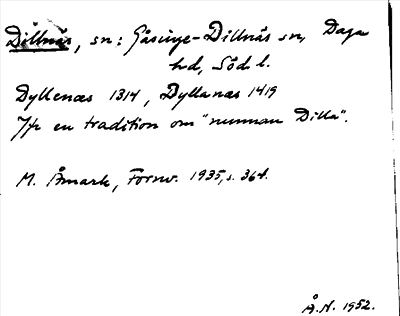 Dillnäs, sn: Gåsinge-Dillnäs sn, Daga
hd, Söd l.
Dyllenæs 1314, Dyllanæs 1419
Jfr en tradition om "nunnan Dilla".
M. Åmark, Fornv. 1935, s. 36f.
Å.N. 1952.